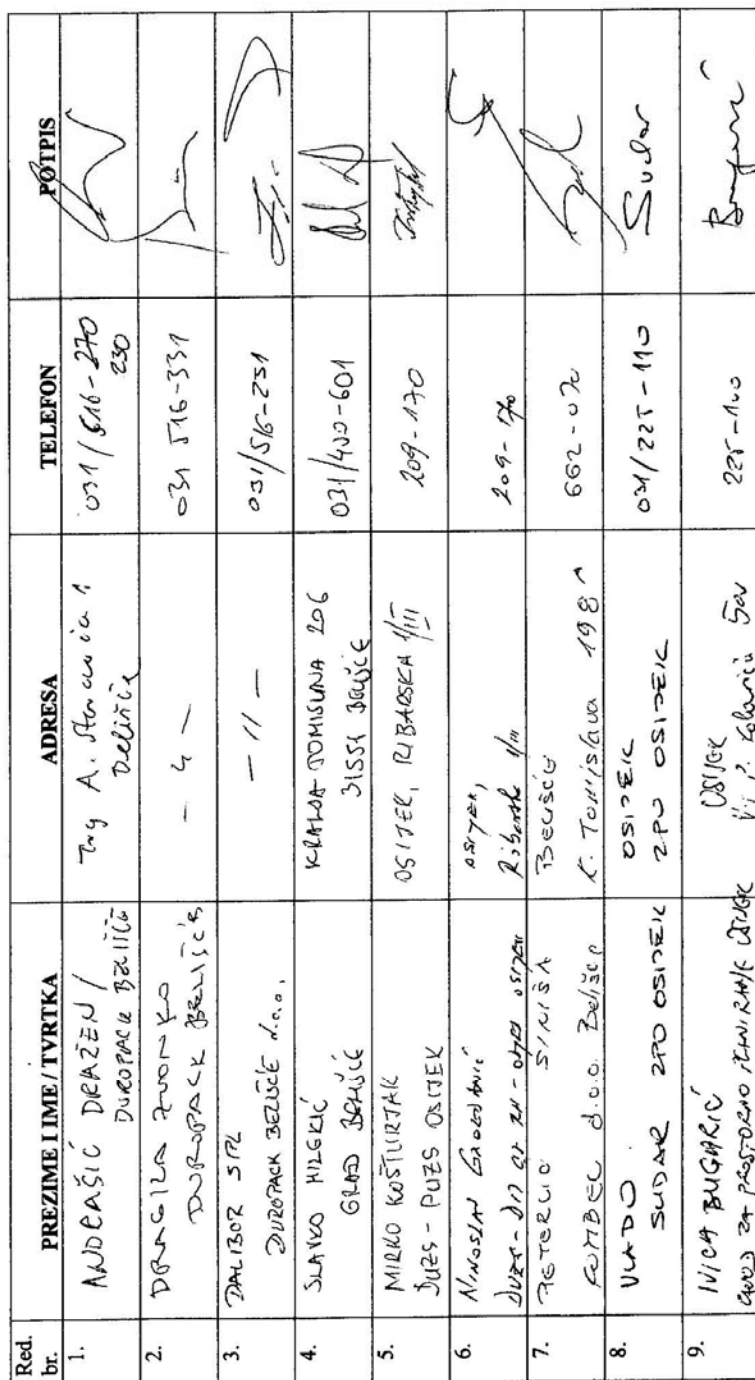 Red. br.
PREZIME I IME / TVRTKA
ADRESA
TELEFON
POTPIS
1.
ANDRAŠIĆ DRAŽEN /
DUROPACK BELIŠĆE
Trg A. Starčevića 1
Belišće
031/516-270
230
2.
DRAGILA ZVONKO
DUROPACK BELIŠĆE
031 516-331
3.
DALIBOR
DUROPACK BELIŠĆE d.o.o.
- 11 -
031/516-231
4.
SLAVKO
GRAD BELIŠĆE
KRALJA TOMISLAVA 206
31551 BELIŠĆE
031/400-601
5.
MIRKO KOŠTURJAK
DUZS - PUZS OSIJEK
OSIJEK, RIBARSKA 1/III
209-170
6.
NINOSLAV
OSIJEK,
Ribarska 1/III
209-170
7.
PETERLIĆ SINIŠA
COMBEL d.o.o. Belišće
BELIŠĆE
K. Tomislava 198
662-070
8.
VLADO
SUDAR ZPU OSIJEK
OSIJEK
ZPU OSIJEK
031/225-110
Sudar
9.
IVICA BUGARIĆ
ZAVOD ZA PROSTORNO PLANIRANJE OSIJEK
OSIJEK
225-100